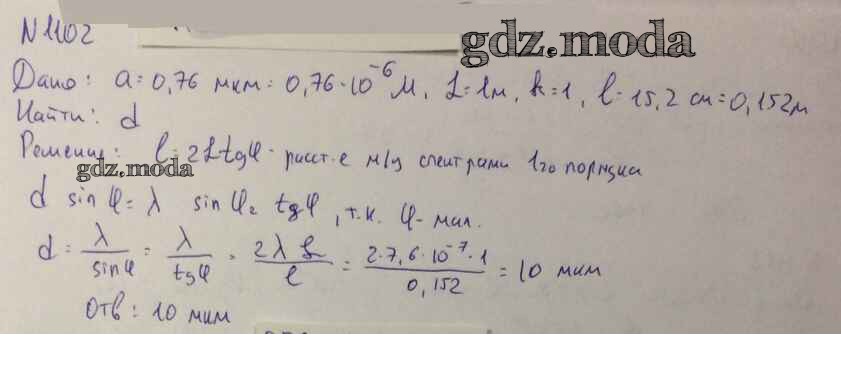 N 1102
gdz.moda
Дано: a = 0,76 мкм = 0,76·10⁻⁶ м, L = 1м, k = 1, l = 15,2 см = 0,152м
Найти: d
Решение: l = 2L tgφ - расст-е м/у спектрами 1го порядка
gdz.moda
d sin φ = λ sin φ ≈ tgφ, т.к. φ - мал.
d = λ/sinφ = λ/tgφ = 2λL/l = 2·7,6·10⁻⁷·1/0,152 = 10 мкм
Отв: 10 мкм